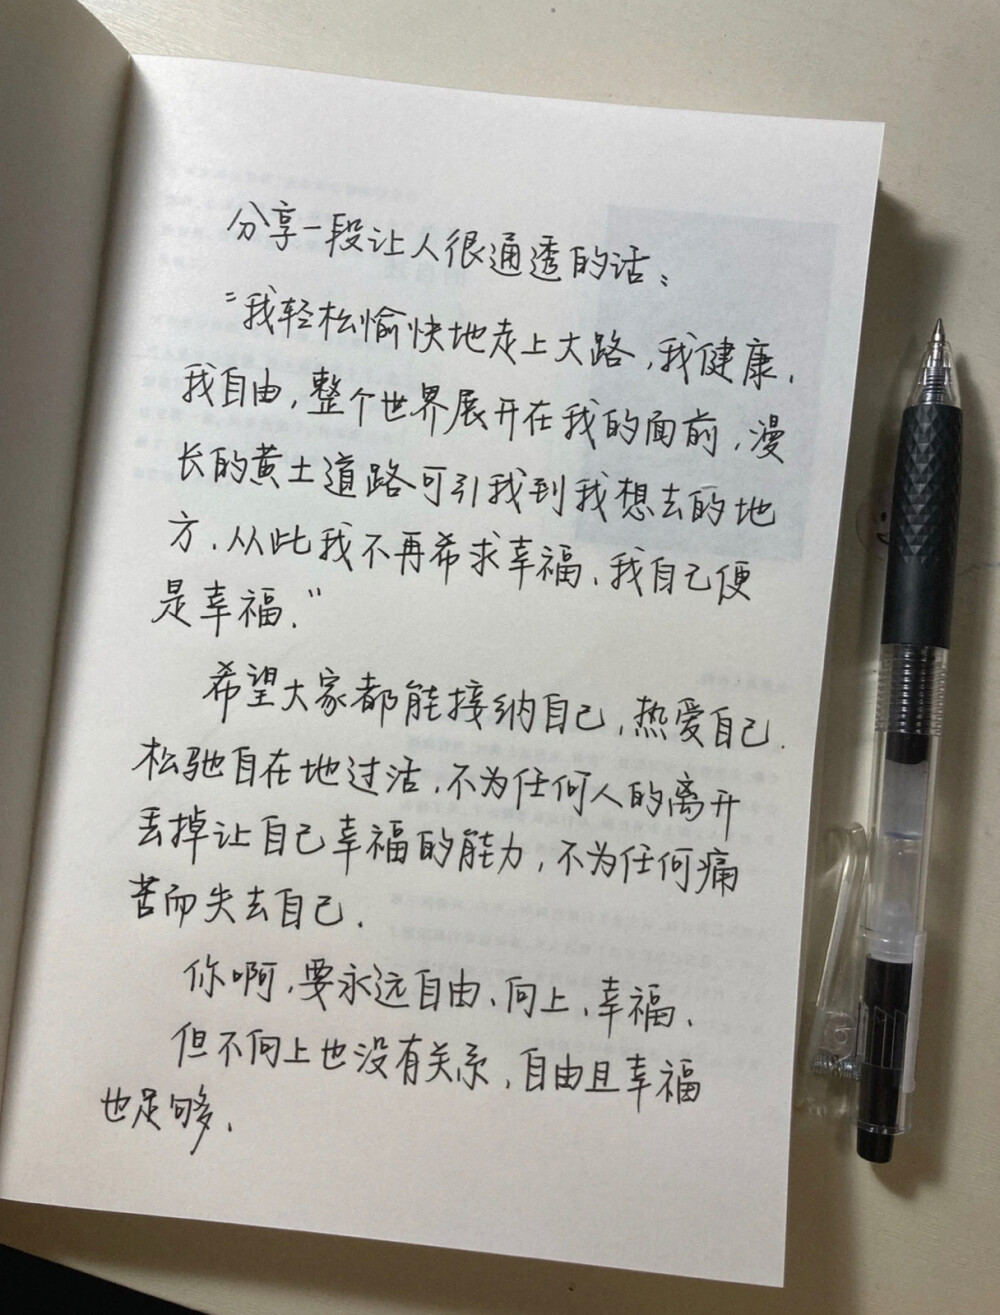 分享一段让人很通透的话：
“我轻松愉快地走上大路，我健康，
我自由，整个世界展开在我的面前，漫
长的黄土道路可引我到我想去的地
方，从此我不再希求幸福、我自己便
是幸福.”
希望大家都能接纳自己，热爱自己.
松驰自在地过活，不为任何人的离开
丢掉让自己幸福的能力，不为任何痛
苦而失去自己.
你啊，要永远自由、向上、幸福、
但不向上也没有关系，自由且幸福
也足够.